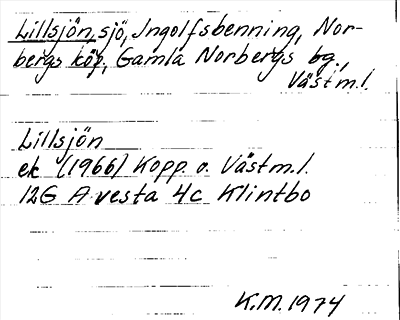 Lillsjön, sjö, Ingolfsbenning, Nor-
bergs köp, Gamla Norbergs bg.,
Västm.l.
Lillsjön
ek (1966) Kopp. o. Västm.l.
12G Avesta 4c Klintbo
K.M. 1974